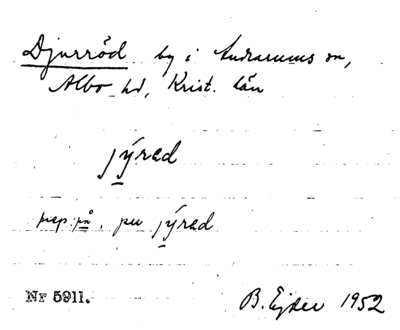 Djurröd by i Andrarums sn,
Albo hd, Krist. län
jýrad
prep. på, pu jýrad
Nr 5911.
B. Ejder 1952